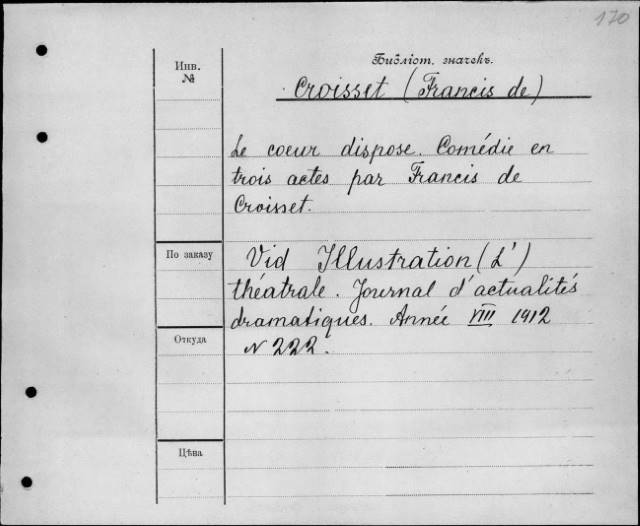 170
Инв.
№
Библіот. значекъ.
Croisset (Francis de)
Le coeur dispose. Comédie en
trois actes par Francis de
Croisset.
По заказу
Vid Illustration (L')
théatrale. Journal d'actualités
dramatiques. Année VIII 1912
Откуда
N 222.
Цѣна